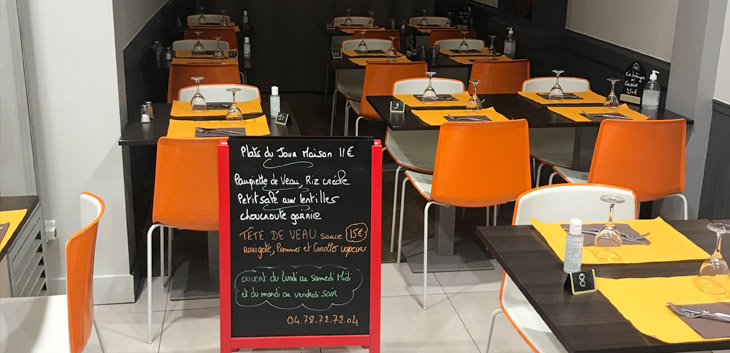 Plats du Jour Maison 11€
Paupiette de Veau, Riz créole
Petit salé aux lentilles
choucroute garnie
TÊTE DE VEAU sauce 15€
Ravigote, Pommes et Carottes vapeur
ouvert du lundi au samedi Midi
et du mardi au vendredi soir
04.78.72.72.04
8
9